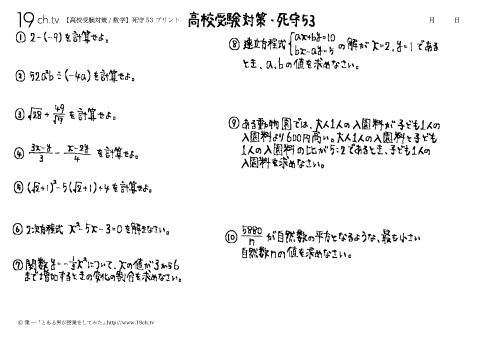 19ch.tv 【高校受験対策/数学】死守53プリント 高校受験対策・死守53 月 日
① 2-(-9)を計算せよ。
② 52a²b÷(-4a)を計算せよ。
③ √28 + 49/√7 を計算せよ。
④ (3x-y)/3 - (x-2y)/4 を計算せよ。
⑤ (√2+1)²-5(√2+1)+4を計算せよ。
⑥ 2次方程式 x²-5x-3=0を解きなさい。
⑦ 関数y=-1/3x²について、xの値が3から6
まで増加するときの変化の割合を求めなさい。
⑧ 連立方程式{ax+by=10 bx-ay=5の解がx=2,y=1である
とき、a,bの値を求めなさい。
⑨ ある動物園では、大人1人の入園料が子ども1人の
入園料より600円高い。大人1人の入園料と子ども
1人の入園料の比が5:2であるとき、子ども1人の
入園料を求めなさい。
⑩ 5880/n が自然数の平方となるような、最も小さい
自然数nの値を求めなさい。
© 葉一「とある男が授業をしてみた」http://www.19ch.tv